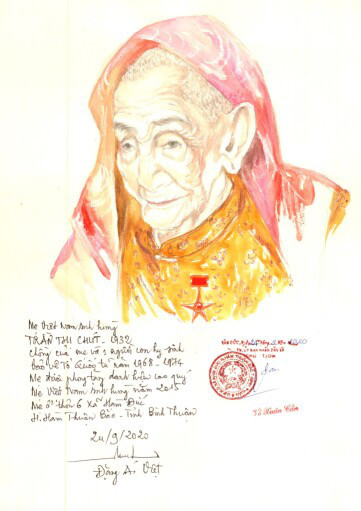 Mẹ Việt Nam anh hùng
TRẦN THỊ CHÚT - 1932
Chồng của mẹ và 1 người con hy sinh
bảo vệ Tổ Quốc từ năm 1968 - 1974
Mẹ được phong tặng danh hiệu cao quý
Mẹ Việt Nam anh hùng năm 2015
Mẹ ở thôn 6 xã Hàm Đức
H. Hàm Thuận Bắc - Tỉnh Bình Thuận
24/9/2020
Đặng Ái Việt
Lê Xuân Cẩm